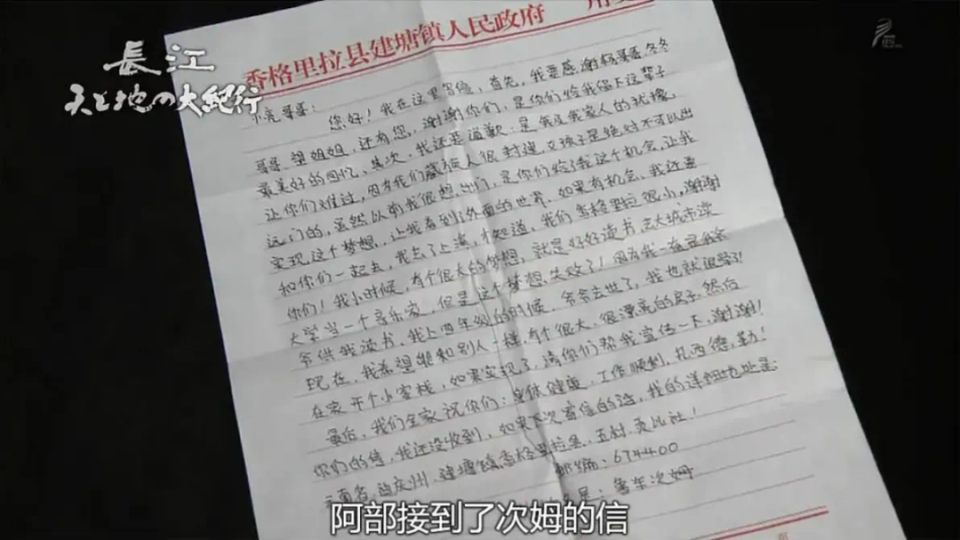 長江
天と地の大紀行
香格里拉县建塘镇人民政府
小亮哥哥:
您好!我在这里写信,首先,我要感谢杨哥哥、冬冬
哥哥、望姐姐,还有您,谢谢你们,是你们给我留下这辈子
最美好的回忆。其次,我还要道歉,是我及我家人的犹豫,
让你们难过,因为我们藏族人很封建,女孩子是绝对不可以出
远门的,虽然以前我很想出门,是你们给了我这个机会,让我
实现这个梦想,让我看到了外面的世界。如果有机会,我还要
和你们一起去,我去了上海,才知道,我们香格里拉很小,谢谢
你们!我小时候,有个很大的梦想,就是好好读书,去大城市读
大学当一个音乐家,但是这个梦想失败了!因为我一直是我爷
爷供我读书,我上四年级的时候,爷爷去世了,我也就退学了!
现在,我希望能和别人一样,有个很大、很漂亮的房子,然后
在家开个小客栈,如果实现了,请你们帮我宣传一下,谢谢!
最后,我们全家祝你们:身体健康,工作顺利,扎西德勒!
你们的信,我还没收到,如果下次寄信的话,我的详细地址是:
云南省,迪庆州,建塘镇
邮编:674400
鲁茸次姆
阿部接到了次姆的信